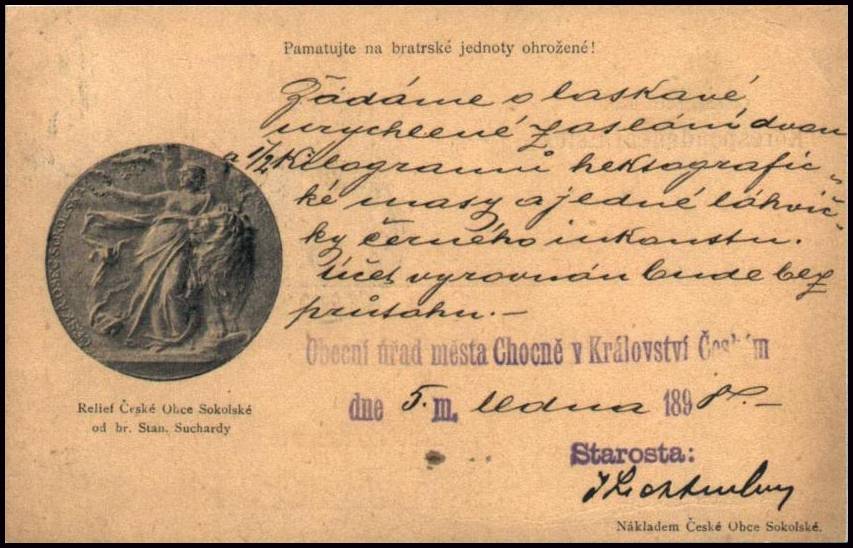 Pamatujte na bratrské jednoty ohrožené!
Žádáme o laskavé
urychlené zaslání dvou
a 1/2 Kilogramů hektografic-
ké masy a jedné láhvič-
ky černého inkoustu.
Účet vyrovnán bude bez
průtahu.-
Obecní úřad města Chocně v Království Českém
dne 5. m. ledna 1898.-
Starosta:
Relief České Obce Sokolské
od br. Stan. Suchardy
Nákladem České Obce Sokolské.